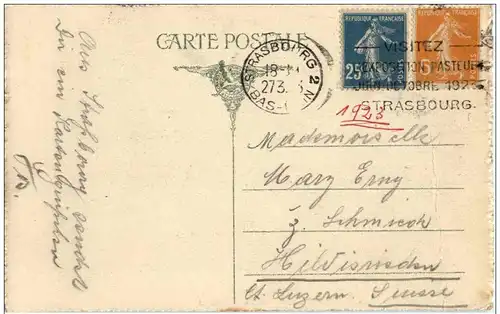 CARTE POSTALE
REPUBLIQUE FRANÇAISE
25
REPUBLIQUE FRANÇAISE
STRASBOURG 2
18
273
BAS-
VISITEZ
EXPOSITION PASTEUR
JUIN OCTOBRE 1923
STRASBOURG.
1923
Aus Straßburg sendet
Dir ein
Mademoiselle
Mary Erny
z. Schmied
Hildisrieden
Ct. Luzern. Suisse